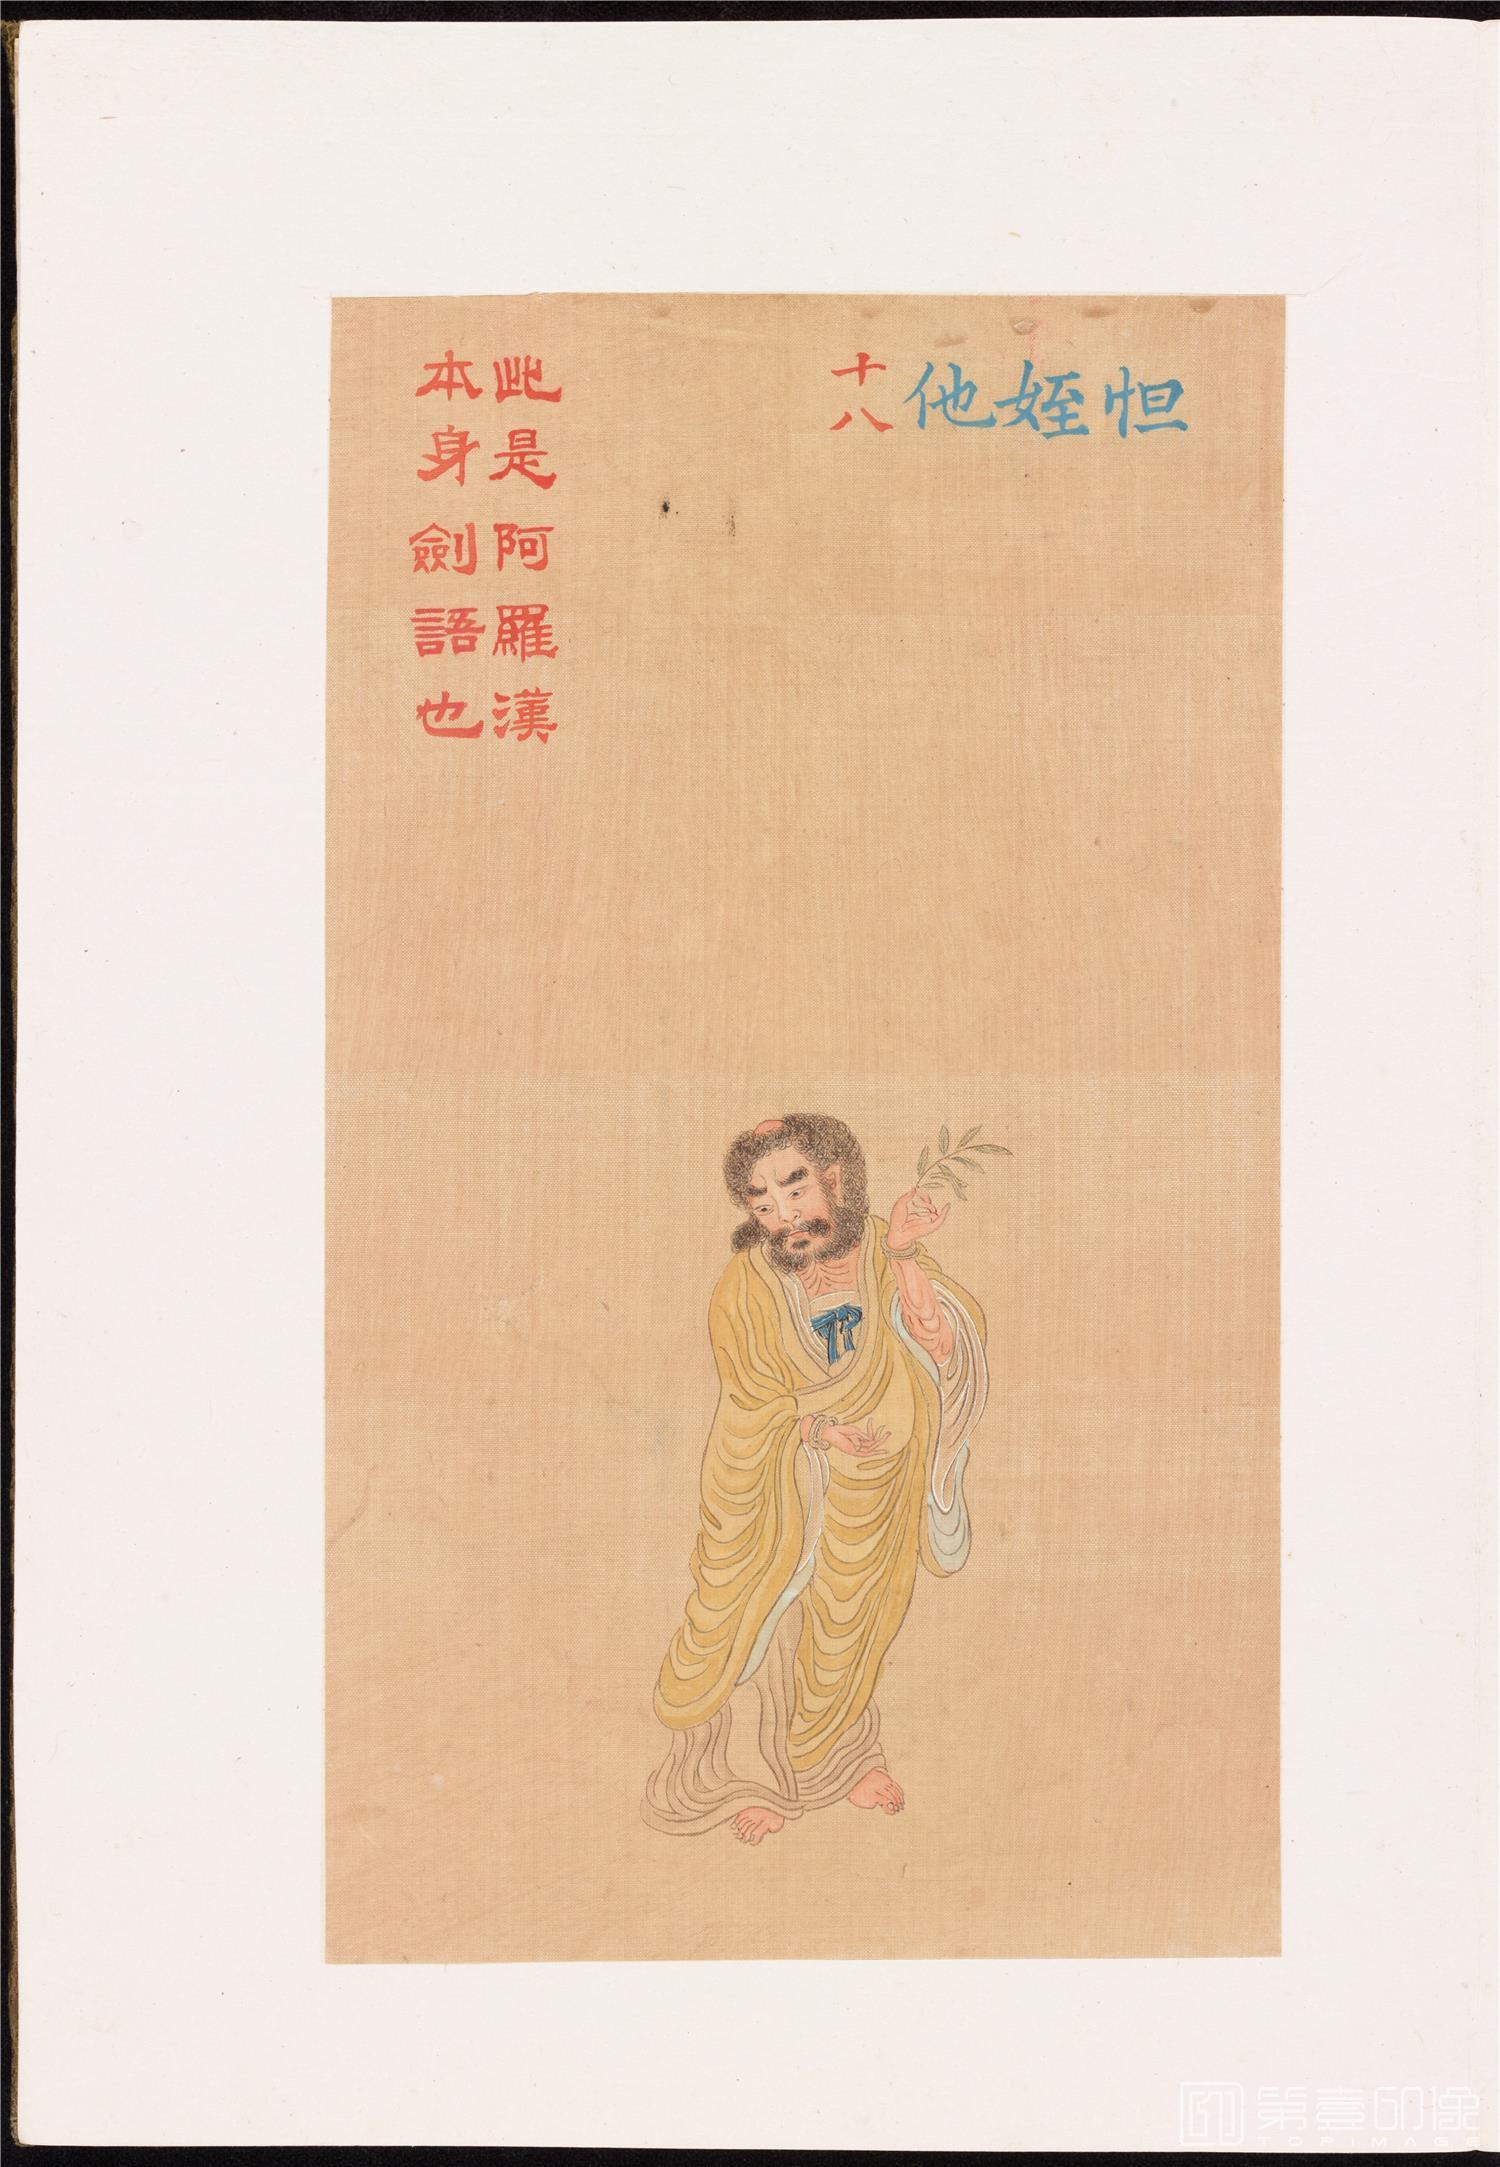 怛姪他
十八
此是阿羅漢
本身劍語也
第壹印像
TOPIMAGE